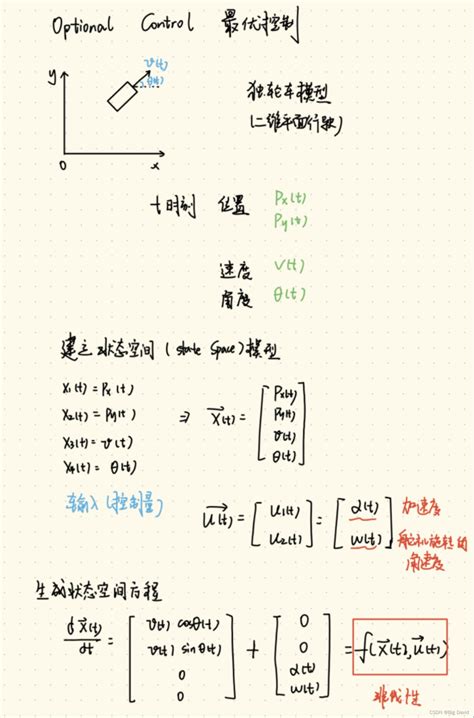 Optional Control 最优控制
y
v(t)
θ(t)
0
x
独轮车模型
(二维平面行驶)
t时刻 位置 Px(t)
Py(t)
速度 V(t)
角度 θ(t)
建立状态空间 (state Space) 模型
X1(t) = Px(t)
X2(t) = Py(t)
X3(t) = v(t)
X4(t) = θ(t)
⇒ X(t) = [Px(t) Py(t) v(t) θ(t)]
输入 (控制量)
u(t) = [u1(t) u2(t)] = [α(t) w(t)]
加速度
角速度
生成状态空间方程
dX(t)/dt = [v(t) cosθ(t) v(t) sinθ(t) 0 0] + [0 0 α(t) w(t)] = f(X(t), u(t))
非线性